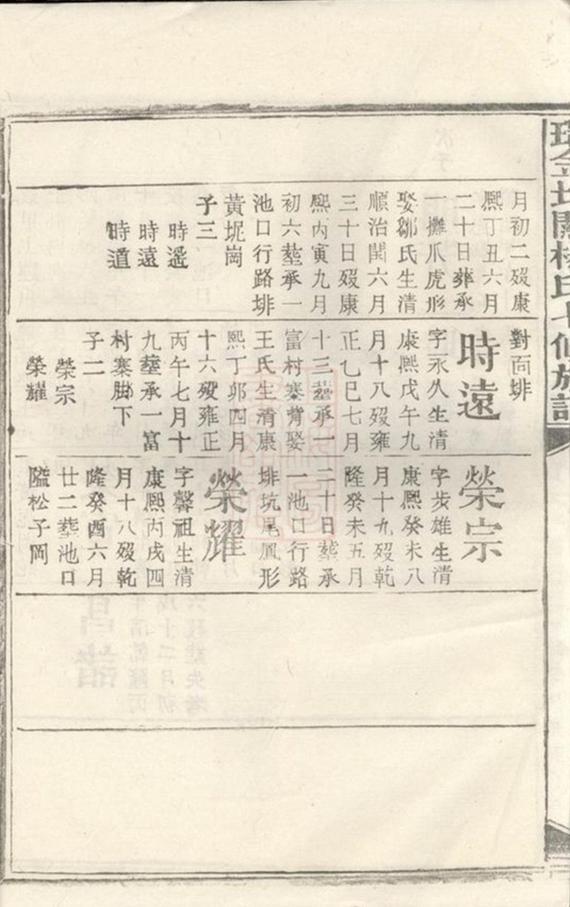 月初二歿康
熙丁丑六月
二十日葬承
一攤爪虎形
娶鄒氏生清
順治閏六月
三十日歿康
熙丙寅九月
初六塟承一
池口行路排
黃坭崗
子三
時遙
時遠
時道
對面排
時遠
字永久生清
康熙戊午九
月十八歿雍
正乙巳七月
十三塟承一
富村寨背娶
王氏生清康
熙丁卯四月
十六歿雍正
丙午七月十
九塟承一富
村寨脚下
子二
榮宗
榮耀
榮宗
字步雄生清
康熙癸未八
月十九歿乾
隆癸未五月
二十日塟承
一池口行路
排坑尾鳳形
榮耀
字馨祖生清
康熙丙戌四
月十八歿乾
隆癸酉六月
廿二塟池口
隘松子岡